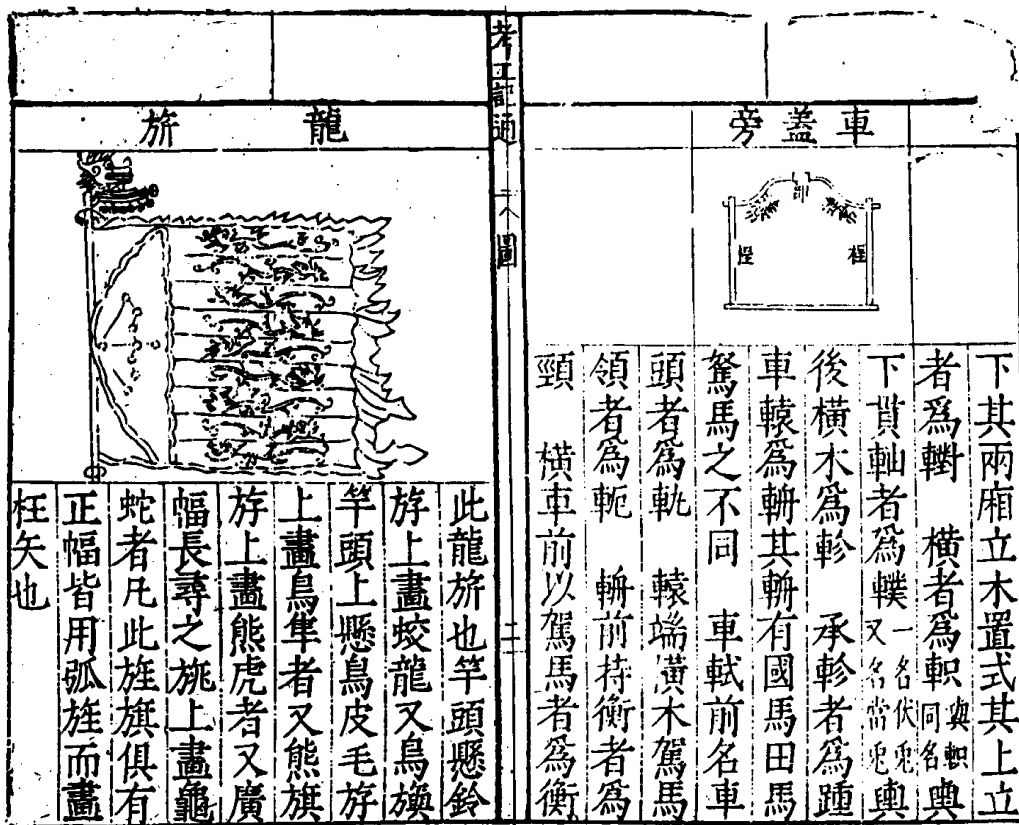 車蓋旁
部
桯
桯
下其兩廂立木置式其上立
者爲轛 橫者爲軹與軹同名輿
下貫軸者爲轐一名伏兔又名當兔輿
後橫木爲軫 承軫者爲踵
車轅爲輈其輈有國馬田馬
駑馬之不同 車軾前名車
頭者爲軓 轅端橫木駕馬
領者爲軛 輈前持衡者爲
頸 橫車前以駕馬者爲衡
考工記通 圖
龍旂
此龍旂也竿頭懸鈴
斿上畫蛟龍又鳥旟
竿頭上懸鳥皮毛斿
上畫鳥隼者又熊旗
斿上畫熊虎者又廣
幅長尋之旐上畫龜
蛇者凡此旌旗俱有
正幅皆用弧旌而畫
枉矢也